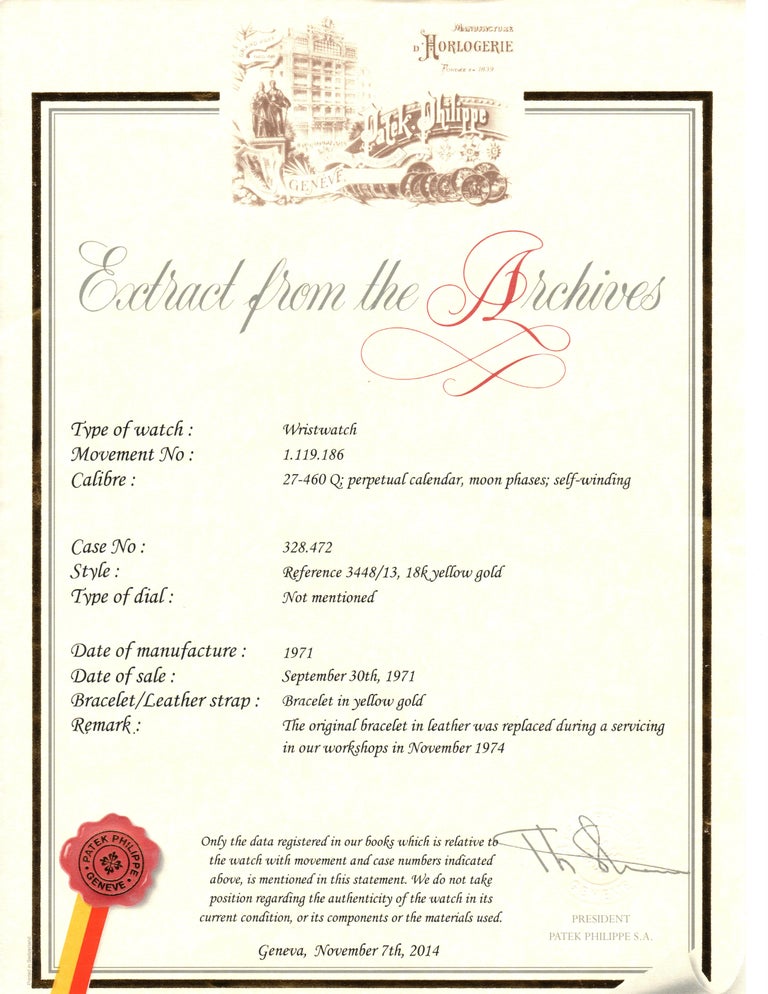 MANUFACTURE
D'HORLOGERIE
Fondée en 1839
Patek Philippe
GENÈVE
Extract from the Archives
Type of watch : Wristwatch
Movement No : 1.119.186
Calibre : 27-460 Q; perpetual calendar, moon phases; self-winding
Case No : 328.472
Style : Reference 3448/13, 18k yellow gold
Type of dial : Not mentioned
Date of manufacture : 1971
Date of sale : September 30th, 1971
Bracelet/Leather strap : Bracelet in yellow gold
Remark : The original bracelet in leather was replaced during a servicing
in our workshops in November 1974
Only the data registered in our books which is relative to
the watch with movement and case numbers indicated
above, is mentioned in this statement. We do not take
position regarding the authenticity of the watch in its
current condition, or its components or the materials used.
Geneva, November 7th, 2014
PATEK PHILIPPE
GENEVE
PRESIDENT
PATEK PHILIPPE S.A.